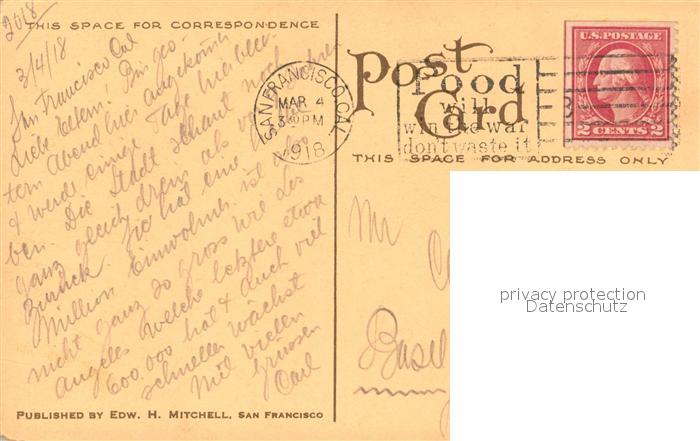 2018
THIS SPACE FOR CORRESPONDENCE
3/4/18
San Francisco Cal
Liebe Eltern! Bin ges-
tern Abend hier angekommen
& werde einige Tage hier blei-
ben. Die Stadt schaut noch
ganz gleich drein als vor
zurück. Sie hat eine
Million Einwohner ist
nicht ganz so gross wie Los
Angeles welche letztere etwa
600.000 hat & auch viel
schneller wächst
Mit vielen
Grüssen
Carl
PUBLISHED BY EDW. H. MITCHELL, SAN FRANCISCO
Post
Card
SAN FRANCISCO, CAL.
MAR 4
3 30 PM
1918
Food
will
win the war
don't waste it
U.S. POSTAGE
2 CENTS 2
THIS SPACE FOR ADDRESS ONLY
Mr
Basel
privacy protection
Datenschutz